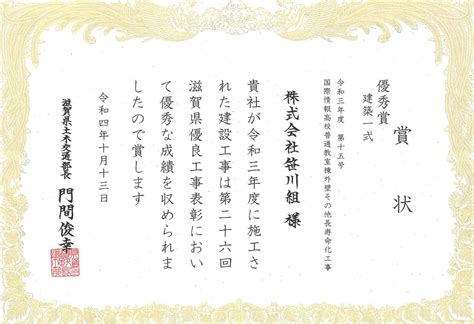 賞状
優秀賞
建築一式
令和三年度 第十五号
国際情報高校普通教室棟外壁その他長寿命化工事
株式会社笹川組 様
貴社が令和三年度に施工さ
れた建設工事は第二十六回
滋賀県優良工事表彰におい
て優秀な成績を収められま
したので賞します
令和四年十月十三日
滋賀県土木交通部長 門間俊幸